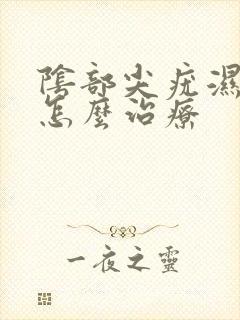 陰部尖疣濕
怎麼治療
一夜之靈